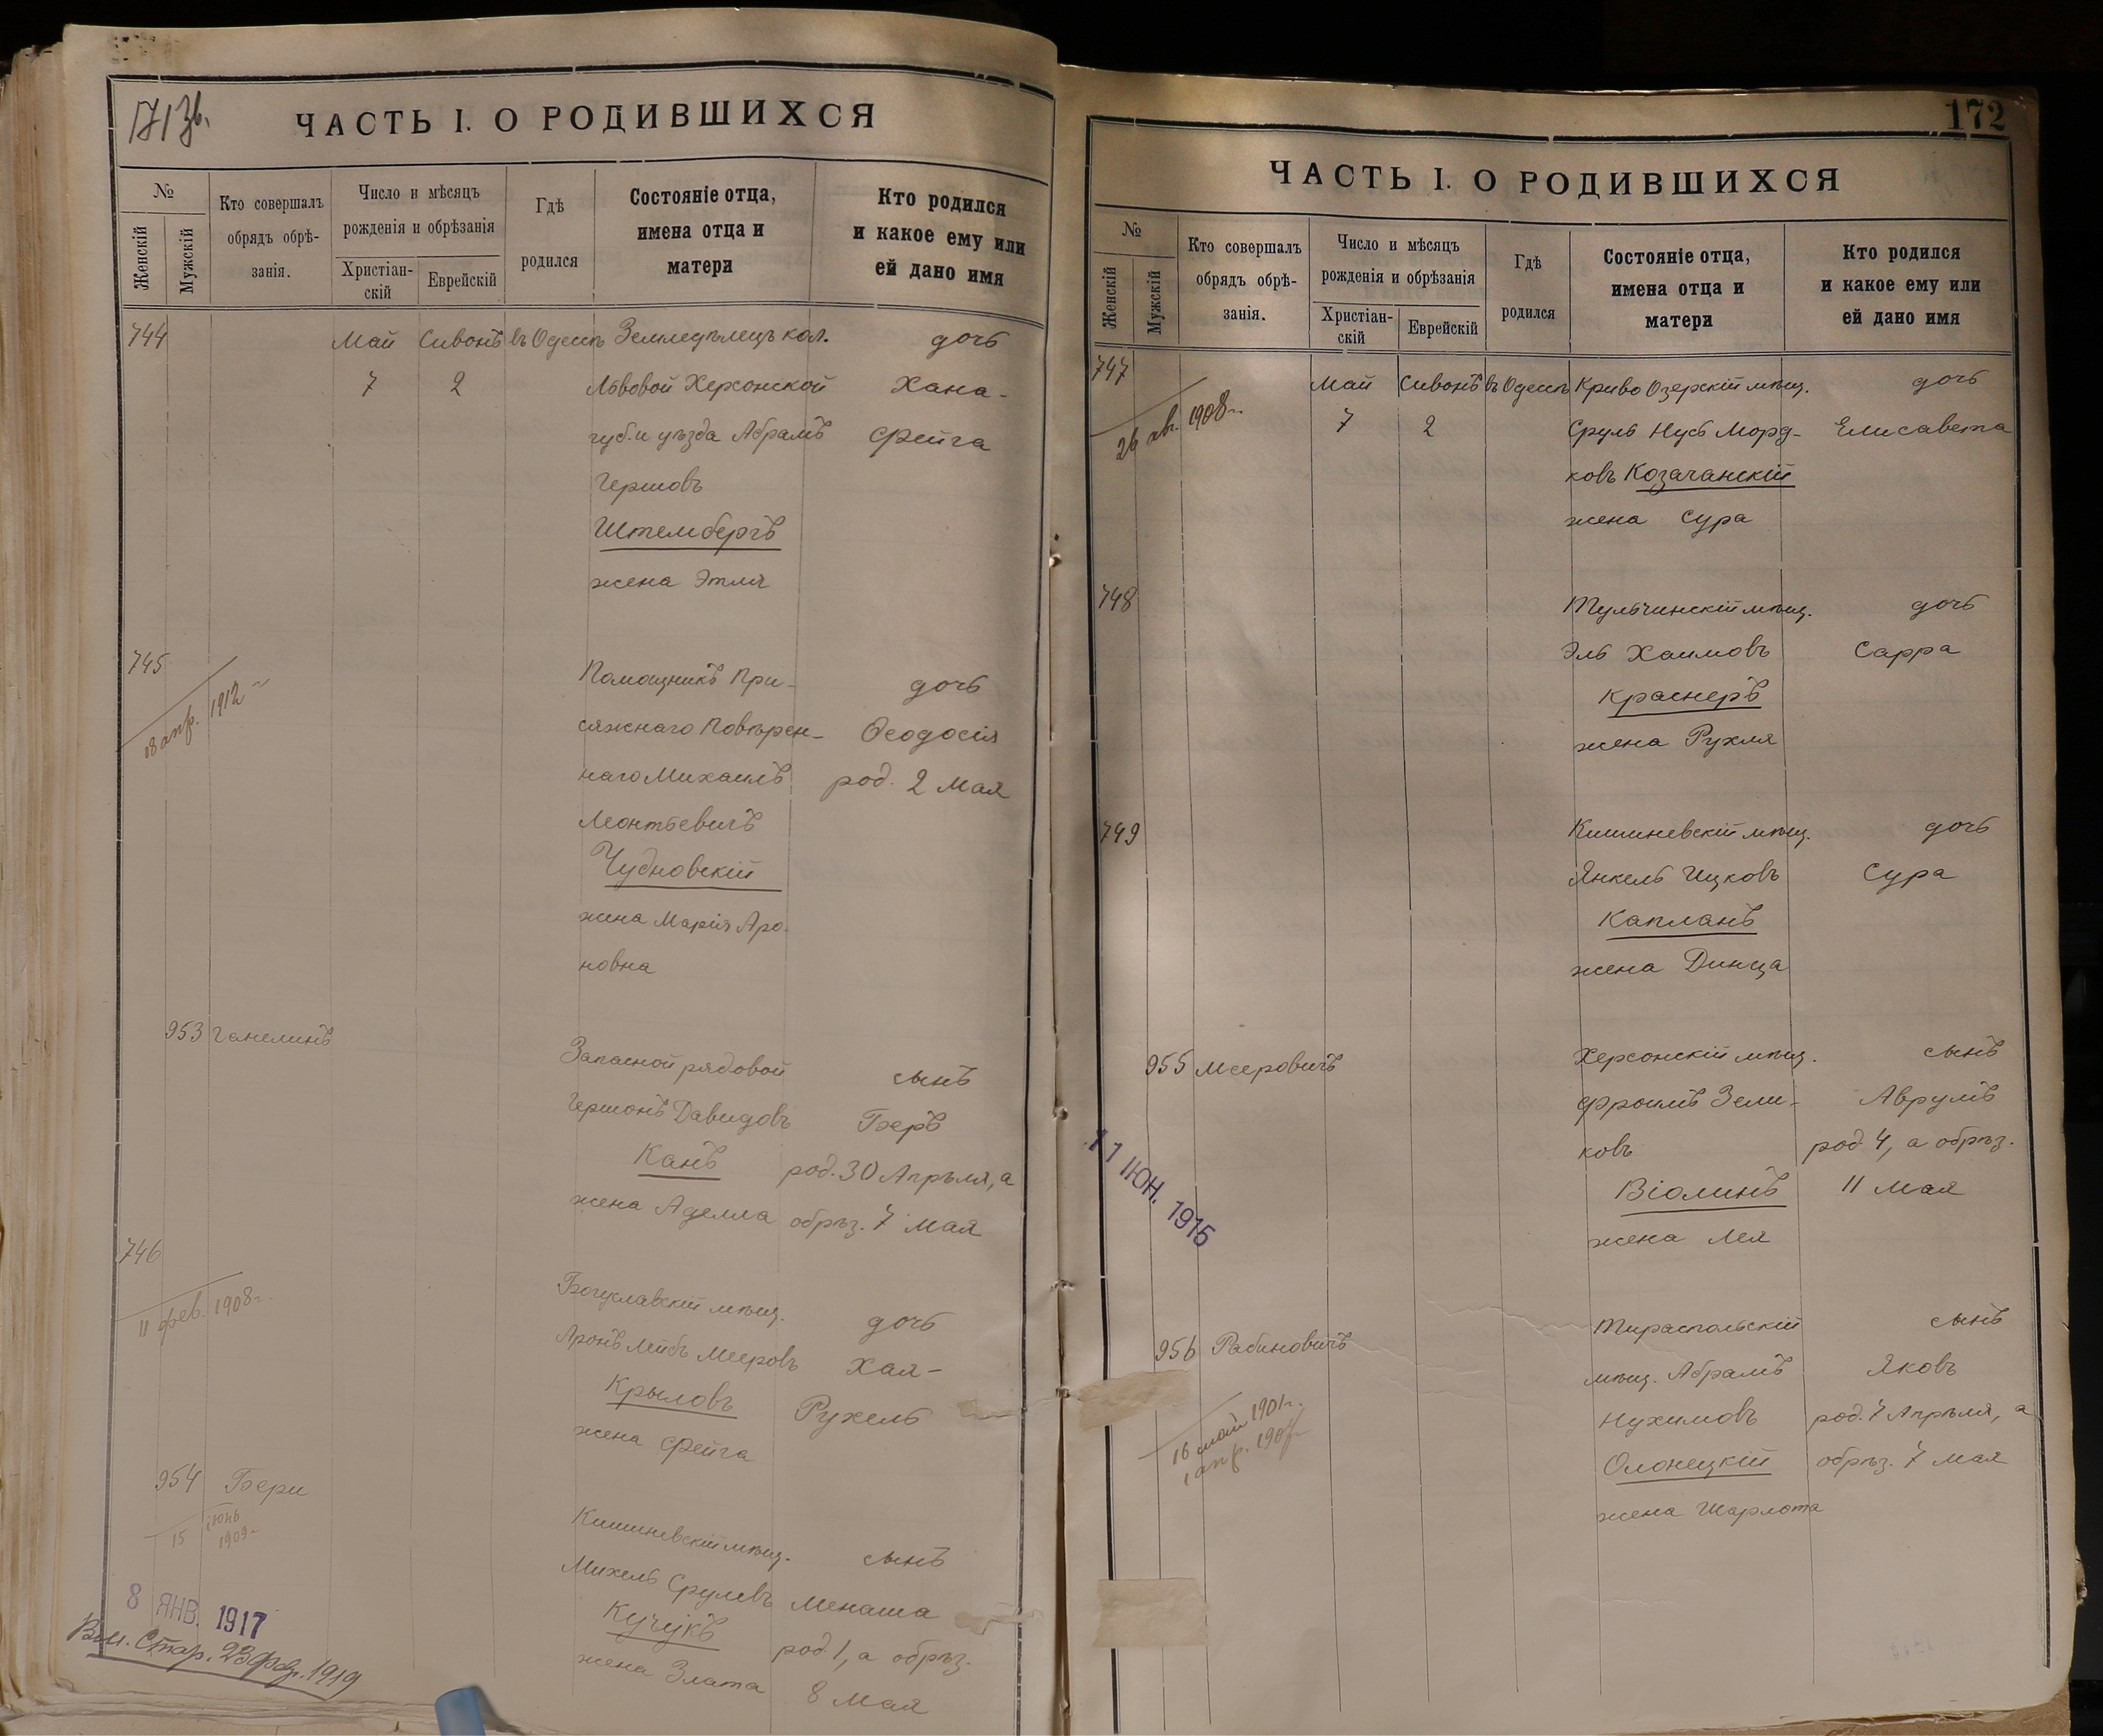 171 зв.
ЧАСТЬ I. О РОДИВШИХСЯ
№
Женскій
Мужскій
Кто совершалъ
обрядъ обрѣ-
занія.
Число и мѣсяцъ
рожденія и обрѣзанія
Христіан-
скій
Еврейскій
Гдѣ
родился
Состояніе отца,
имена отца и
матери
Кто родился
и какое ему или
ей дано имя
744 Май Сивонъ въ Одессѣ Земледѣлецъ кол. дочь
7 2 Львовой Херсонской Хана-
губ. и уѣзда Абрамъ Фейга
Гершовъ
Штембергъ
жена Этля
745 Помощникъ При- дочь
18 апр. 1912 сяжнаго Повѣрен- Ѳеодосія
наго Михаилъ род. 2 Мая
Леонтьевичъ
Чудновскій
жена Марія Аро-
новна
953 Ганелинъ Запасной рядовой сынъ
Гершонъ Давидовъ Беръ
Канъ род. 30 Апрѣля, а
жена Аделла обрѣз. 7 Мая
746
11 фев. 1908 г. Богуславскій мѣщ. дочь
Аронъ Лейбъ Мееровъ Хая-
Крыловъ Рухель
жена Фейга
954 Бери Кишиневскій мѣщ. сынъ
15 іюнь 1909 Михель Срулевъ Менаша
Кучукъ род. 1, а обрѣз.
жена Злата 8 Мая
8 ЯНВ. 1917
Вып. Стар. 23 Фев. 1919
172
ЧАСТЬ I. О РОДИВШИХСЯ
№
Женскій
Мужскій
Кто совершалъ
обрядъ обрѣ-
занія.
Число и мѣсяцъ
рожденія и обрѣзанія
Христіан-
скій
Еврейскій
Гдѣ
родился
Состояніе отца,
имена отца и
матери
Кто родился
и какое ему или
ей дано имя
747 Май Сивонъ въ Одессѣ Криво Озерскій мѣщ. дочь
26 ав. 1908 г. 7 2 Сруль Нусь Морд- Елисавета
ковъ Козачанскій
жена Сура
748 Тульчинскій мѣщ. дочь
Эль Хаимовъ Сарра
Краснеръ
жена Рухля
749 Кишиневскій мѣщ. дочь
Янкель Ицковъ Сура
Капланъ
жена Динца
955 Мееровичъ Херсонскій мѣщ. сынъ
Фроимъ Зели- Аврумъ
ковъ род. 4, а обрѣз.
Віолинъ 11 Мая
жена Лея
11 ІЮН. 1915
956 Рабиновичъ Тираспольскій сынъ
мѣщ. Абрамъ Яковъ
16 май 1901 г. Нухимовъ род. 7 Апрѣля, а
1 апр. Олонецкій обрѣз. 7 Мая
жена Шарлота